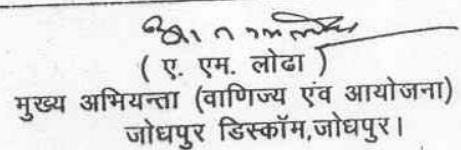 ( ए. एम. लोढा )
मुख्य अभियन्ता (वाणिज्य एंव आयोजना)
जोधपुर डिस्कॉम,जोधपुर।